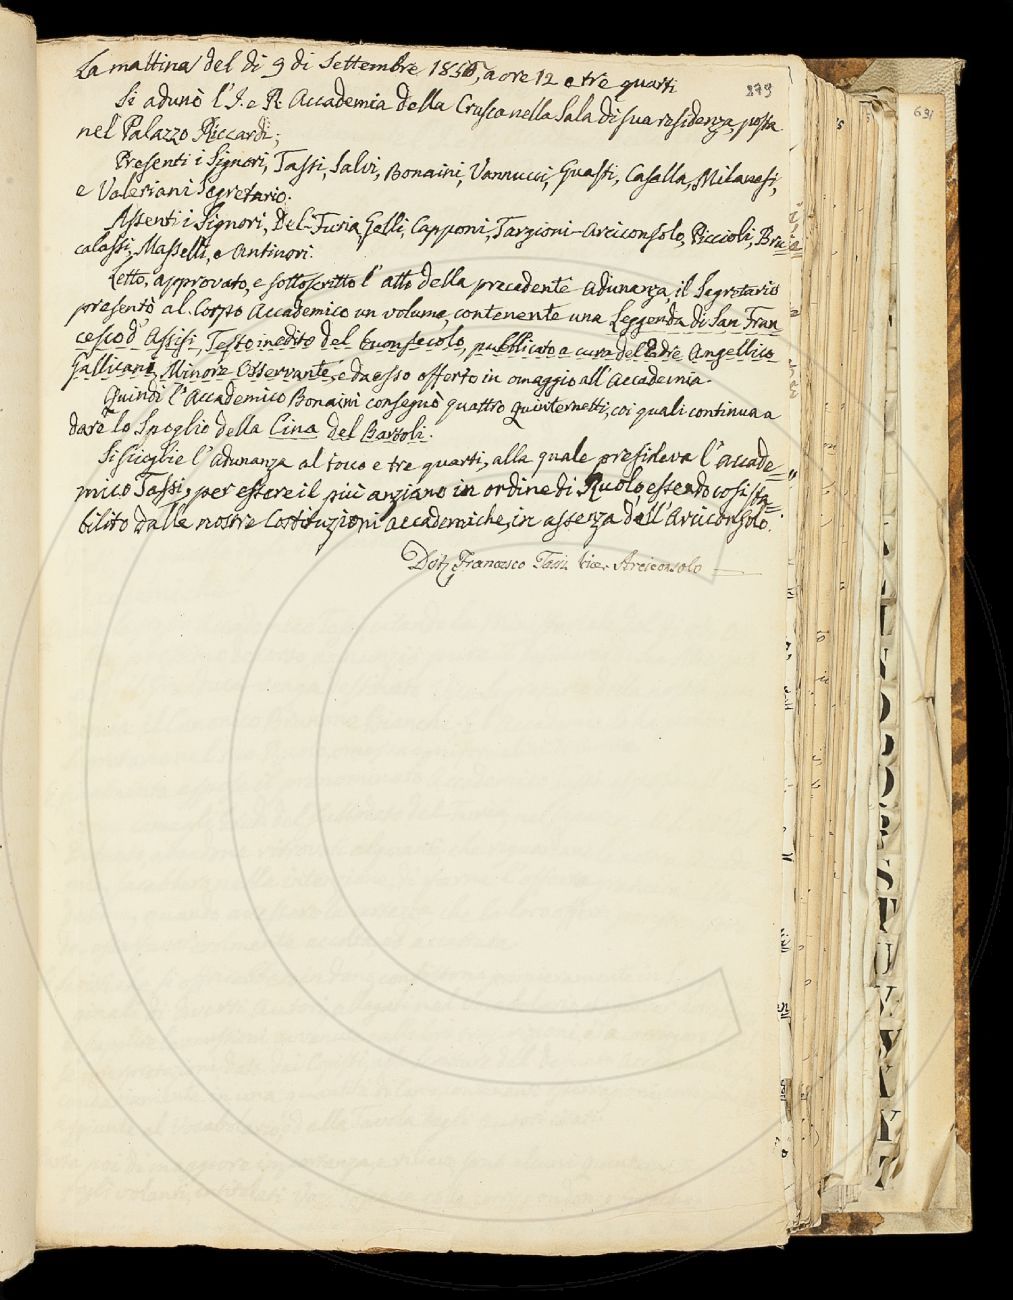 279
La mattina del dì 9 di Settembre 1856, a ore 12 e tre quarti
Si adunò l'I. e R. Accademia della Crusca nella Sala di sua residenza, posta
nel Palazzo Riccardi;
Presenti i Signori, Tassi, Salvi, Bonaini, Vannucci, Guasti, Casella, Milanesi,
e Valeriani Segretario.
Assenti i Signori, Del-Furia, Gelli, Capponi, Targioni-Arciconsolo, Piccioli, Bru=
calassi, Masselli, e Antinori.
Letto, approvato, e sottoscritto l'atto della precedente Adunanza, il Segretario
presentò al Corpo Accademico un volume, contenente una Leggenda di San Fran
cesco d'Assisi, Testo inedito del buon secolo, pubblicato a cura del Padre Angellico
Gallicani, Minore Osservante, e da esso offerto in omaggio all'Accademia.
Quindi l'Accademico Bonaini consegnò quattro quinternetti, coi quali continua a
dare lo Spoglio della Cina del Bartoli.
Si scioglie l'Adunanza al tocco e tre quarti, alla quale presideva l'Accade=
mico Tassi, per essere il più anziano in ordine di Ruolo, essendo così sta=
bilito dalle nostre Costituzioni accademiche, in assenza dell'Arciconsolo.
Dott. Francesco Tassi Vice-Arciconsolo
631
S
T
U
V
X
Y